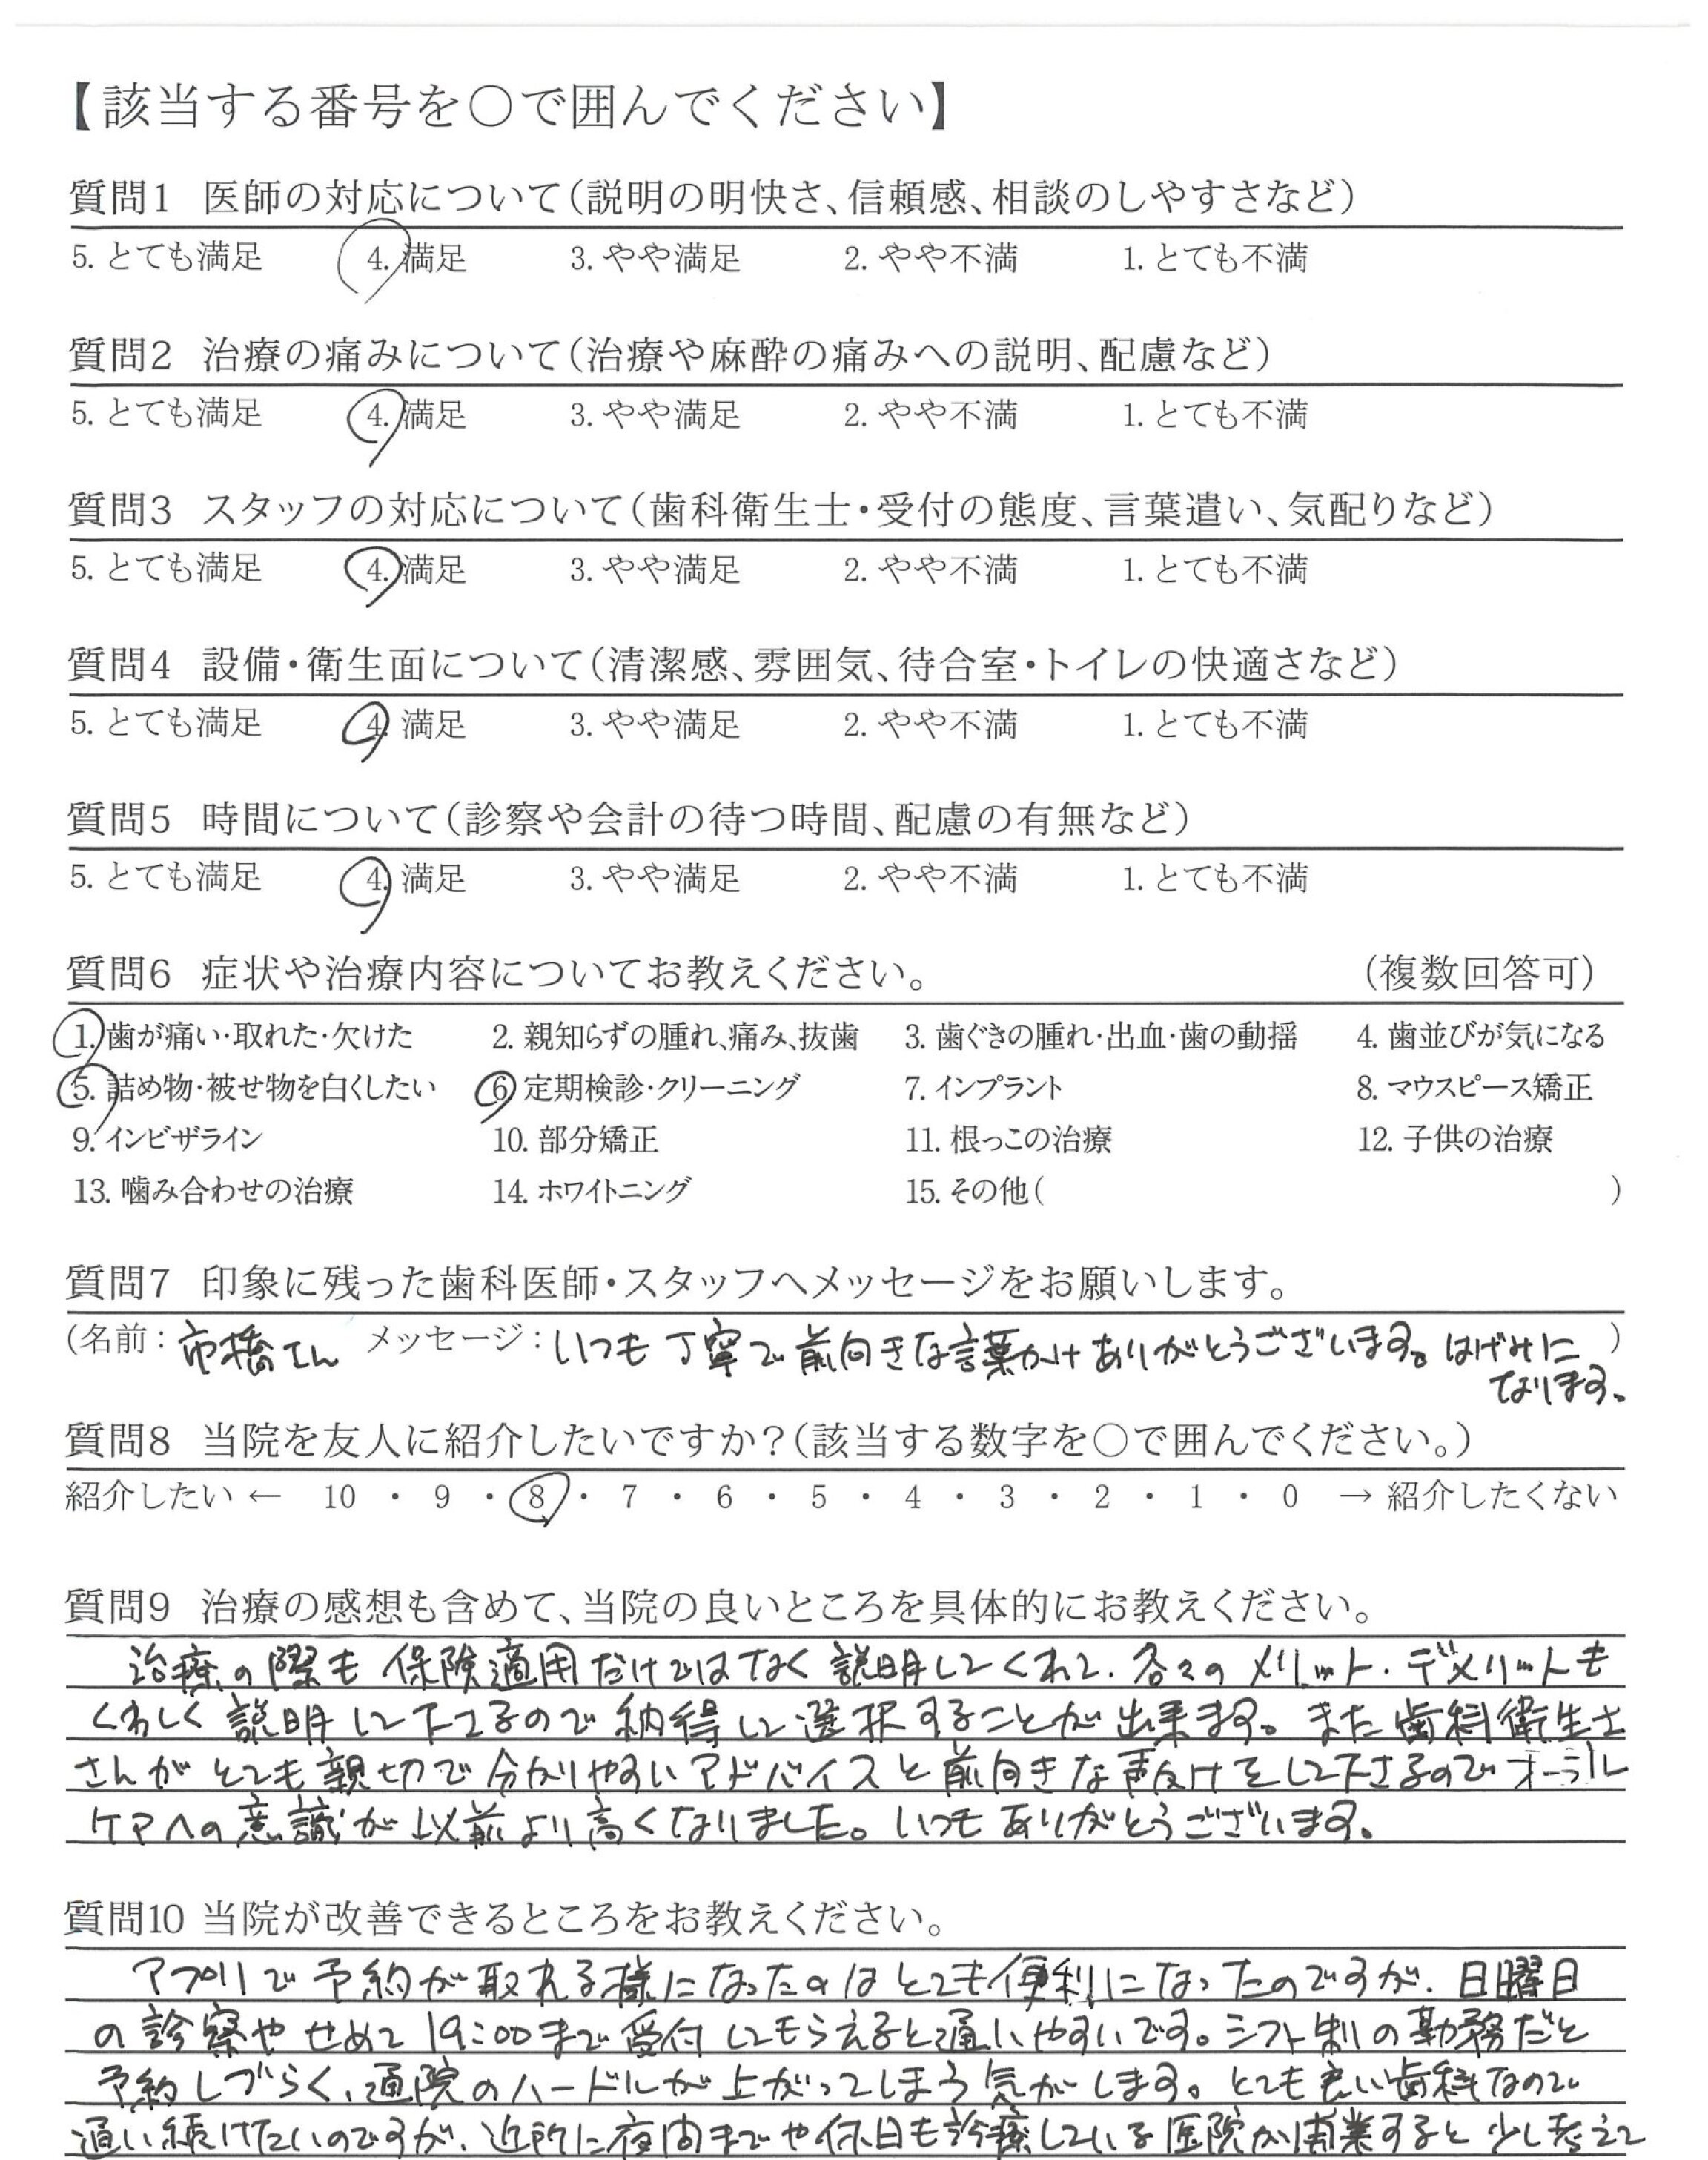 【該当する番号を○で囲んでください】
質問1 医師の対応について(説明の明快さ、信頼感、相談のしやすさなど)
5. とても満足 4. 満足 3. やや満足 2. やや不満 1. とても不満
質問2 治療の痛みについて(治療や麻酔の痛みへの説明、配慮など)
5. とても満足 4. 満足 3. やや満足 2. やや不満 1. とても不満
質問3 スタッフの対応について(歯科衛生士・受付の態度、言葉遣い、気配りなど)
5. とても満足 4. 満足 3. やや満足 2. やや不満 1. とても不満
質問4 設備・衛生面について(清潔感、雰囲気、待合室・トイレの快適さなど)
5. とても満足 4. 満足 3. やや満足 2. やや不満 1. とても不満
質問5 時間について(診察や会計の待つ時間、配慮の有無など)
5. とても満足 4. 満足 3. やや満足 2. やや不満 1. とても不満
質問6 症状や治療内容についてお教えください。 (複数回答可)
1. 歯が痛い・取れた・欠けた 2. 親知らずの腫れ、痛み、抜歯 3. 歯ぐきの腫れ・出血・歯の動揺 4. 歯並びが気になる
5. 詰め物・被せ物を白くしたい 6 定期検診・クリーニング 7. インプラント 8. マウスピース矯正
9. インビザライン 10. 部分矯正 11. 根っこの治療 12. 子供の治療
13. 噛み合わせの治療 14. ホワイトニング 15. その他( )
質問7 印象に残った歯科医師・スタッフへメッセージをお願いします。
(名前: 市橋さん メッセージ: いつも丁寧で前向きな言葉かけありがとうございます。はげみに )
なります。
質問8 当院を友人に紹介したいですか?(該当する数字を○で囲んでください。)
紹介したい ← 10 ・ 9 ・ 8 ・ 7 ・ 6 ・ 5 ・ 4 ・ 3 ・ 2 ・ 1 ・ 0 → 紹介したくない
質問9 治療の感想も含めて、当院の良いところを具体的にお教えください。
治療の際も保険適用だけではなく説明してくれて、各々のメリット・デメリットも
くわしく説明して下さるので納得して選択することが出来ます。また歯科衛生士
さんがとても親切で分かりやすいアドバイスと前向きな声夜けをして下さるのでオーラル
ケアへの意識が以前より高くなりました。いつもありがとうございます。
質問10 当院が改善できるところをお教えください。
アプリで予約が取れる様になったのはとても便利になったのですが、日曜日
の診察やせめて19:00まで受付してもらえると通いやすいです。シフト制の勤務だと
予約しづらく、通院のハードルが上がってしまう気がします。とても良い歯科なので
通い続けたいのですが、近所に夜間までや休日も診療している医院が開業すると少し考えて